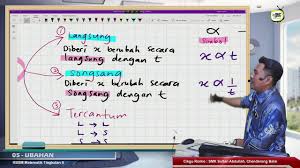 ① Langsung
α
simbol
Diberi x berubah secara
langsung dengan t
x α t
② Songsang
Diberi x berubah secara
songsang dengan t
x α 1/t
③ Tercantum
L → L
L → S
S → S
05 - UBAHAN
KSSM Matematik Tingkatan 5
Cikgu Rome : SMK Sultan Abdullah, Chenderong Balai